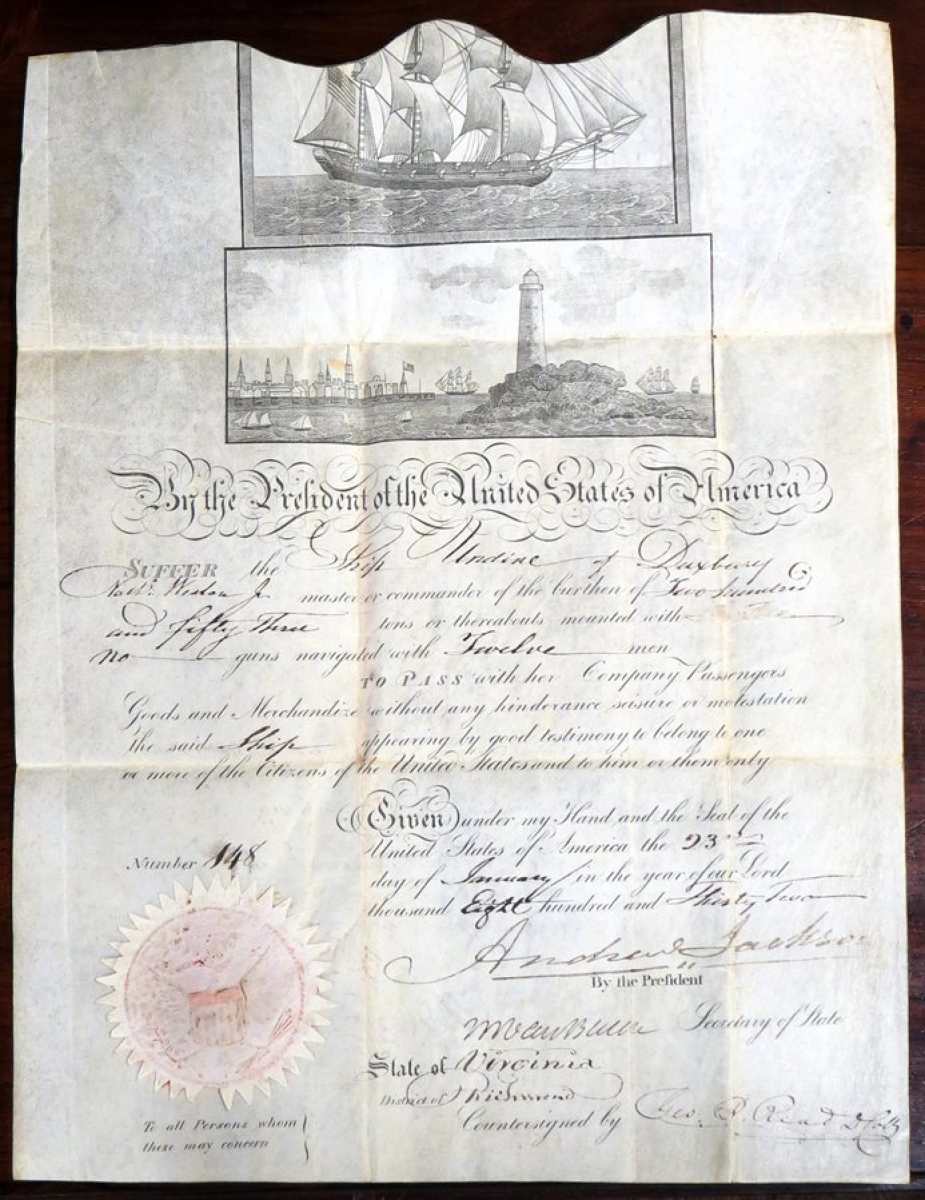 By the President of the United States of America
SUFFER the Ship Undine of Duxbury
Nath.l Weston Jr master or commander of the burthen of Two hundred
and fifty Three tons or thereabouts mounted with
no guns navigated with Twelve men
TO PASS with her Company Passengers
Goods and Merchandize without any hinderance seisure or molestation
the said Ship appearing by good testimony to belong to one
or more of the Citizens of the United States and to him or them only
Given under my Hand and the Seal of the
United States of America the 23rd
Number 148
day of January in the year of our Lord
thousand Eight hundred and Thirty Two
Andrew Jackson
By the President
M Van Buren Secretary of State
State of Virginia
District of Richmond
Countersigned by Geo.
To all Persons whom
these may concern